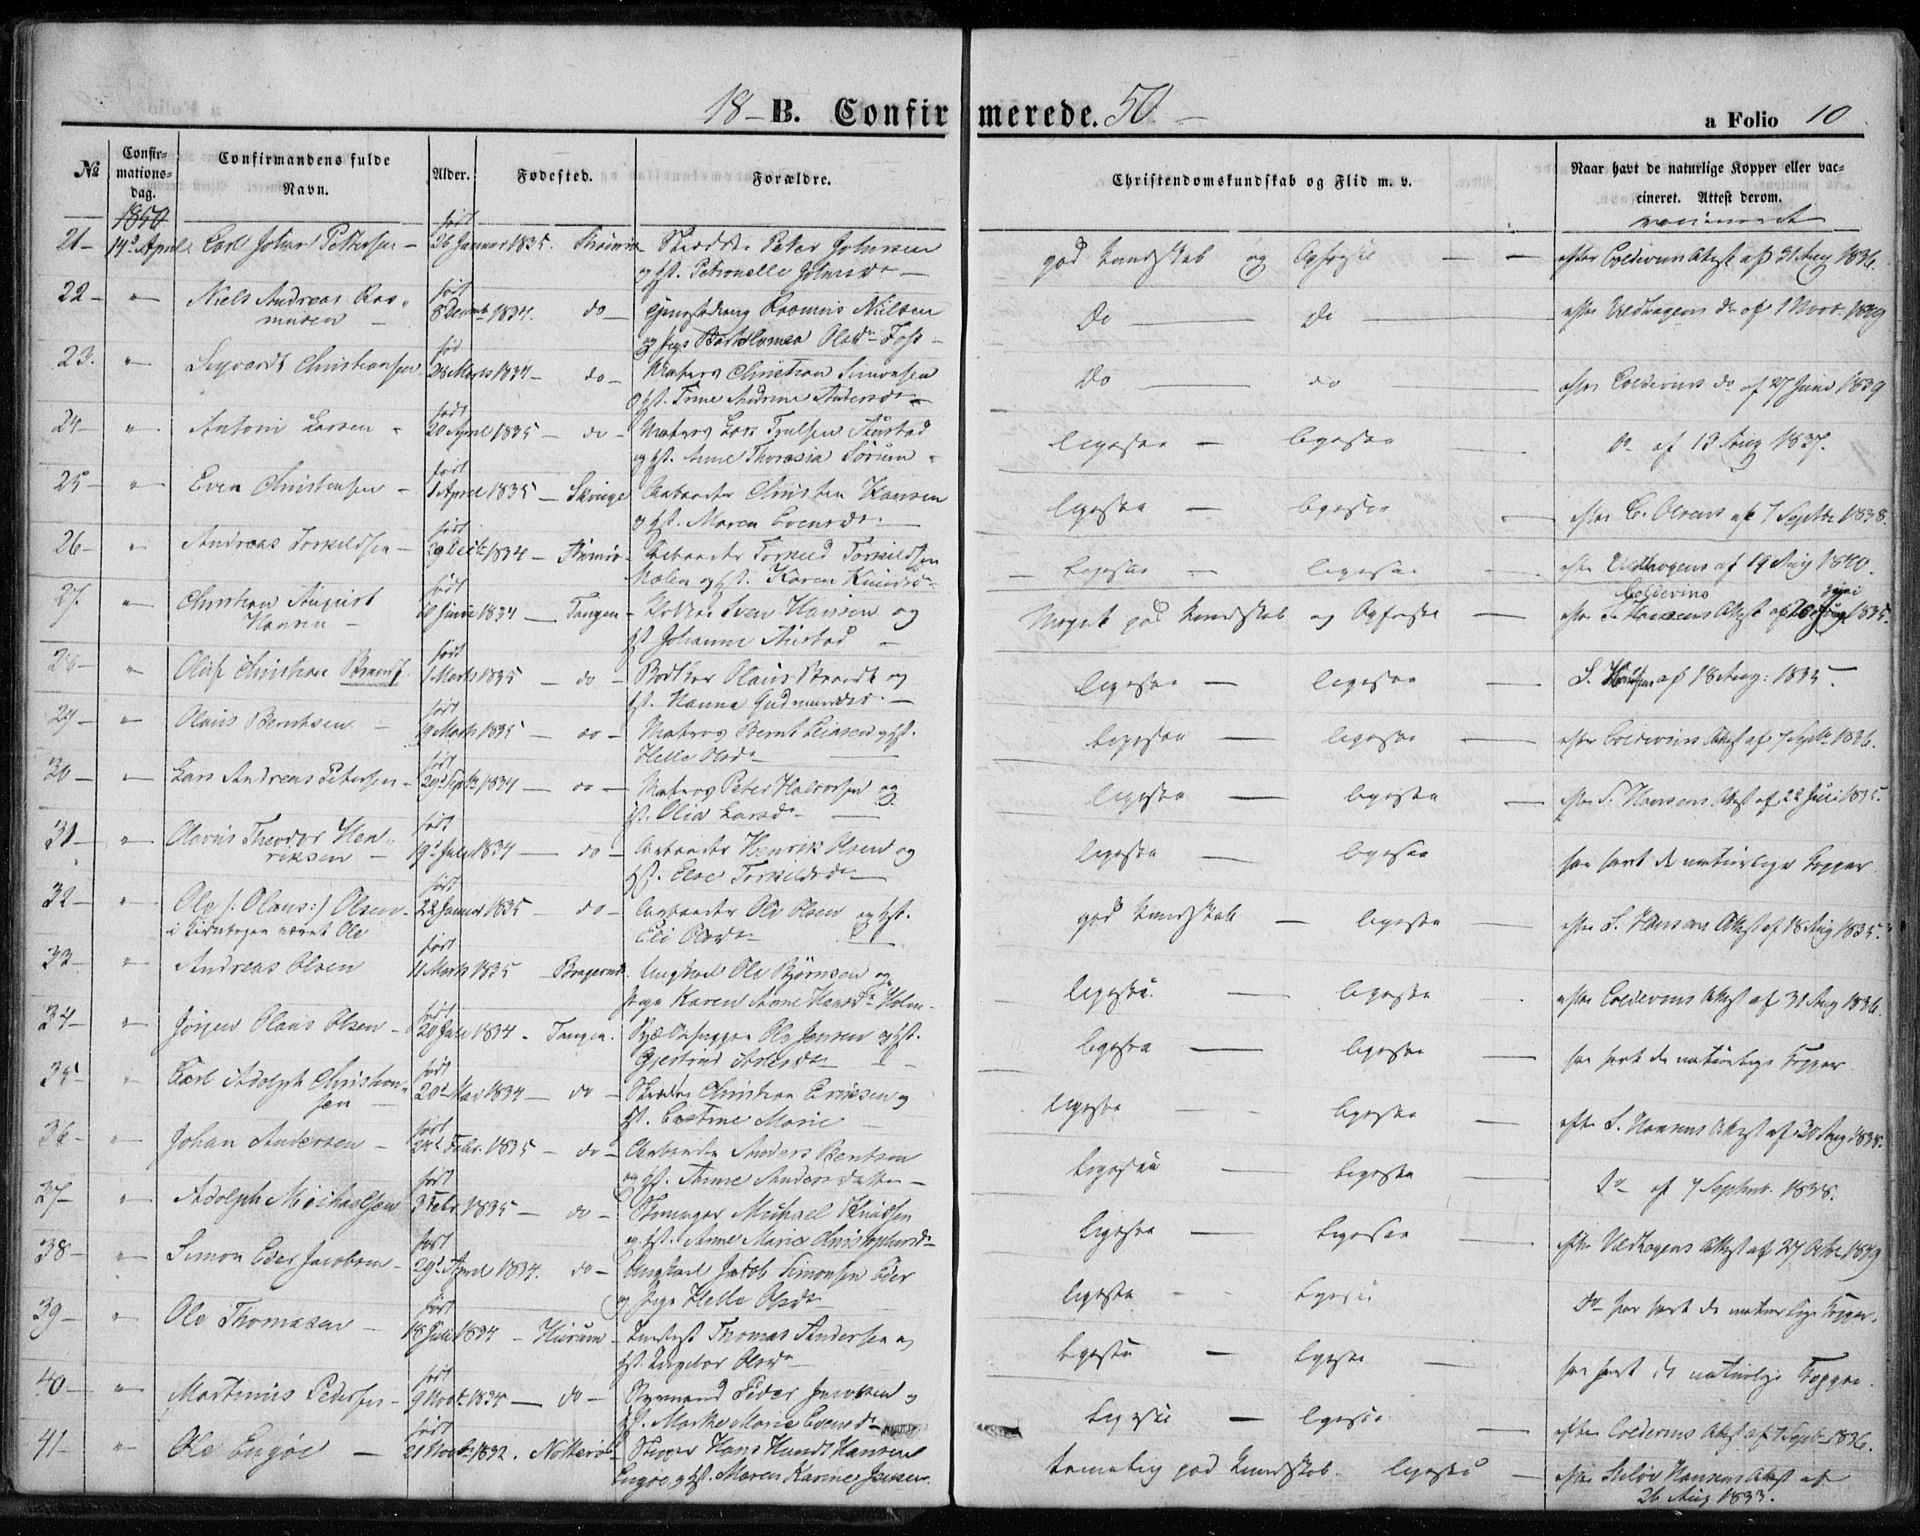 18 - B. Confirmerede. 50 -
a Folio 10
No
Confir-mations-dag.
Confirmandens fulde Navn.
Alder.
Fødested.
Forældre.
Christendomskundskab og Flid m. v.
Naar havt de naturlige Kopper eller vac-
cineret. Attest derom.
1850
vaccineret
21 - 14de April Carl Johan Pettersen - født 26 Januar 1835. Strømsø - Peter Johnsen
og Hst. Petronelle Johnsdr - god Kundskab og Opførsel - - efter Coldevins Attest af 31 Aug 1836.
22 - " - Niels Andreas Rasmusen - født 8 Decemb 1834. do - Rasmus Nielsen
og Pige Bartholomea Olsdr Foss - Do - Do - efter Vedhogens do af 1 Novb. 1849
23. " Sigvardt Christiansen fød 28 Marts 1834 - do - Matros Christian Simonsen
og Hst. Trine Andrine Andersdr - Do - do - efter Coldevins do af 27 Juni 1839
24 - " Antoni Larsen - født 20 April 1835 - do - Matros Lars
og Hst. Anne Thorasia Sørum - ligesaa - ligesaa - do af 13 Aug 1837.
25 - " Even Christensen - født 1 April 1835 - Skouge Arbeider Christen Hansen
og Hst. Maren Evensdr. - ligesaa - ligesaa - efter C. Olsens af 7 Septbr 1838.
26 - " Andreas Torkildsen - født 29 Decbr 1834 - Strømsø - Arbeider Torkild Torkildsen
Mælen og Hst. Karen Knudsdr - ligesaa - ligesaa - efter Vedhogens af 19 Aug 1840.
27. " Christian August Hansen - født 10 Junii 1834 - Tangen - Iver Hansen og
Hst Johanne - Meget god Kundskab og Opførsel - efter Coldevins Attest af Juni 1835.
28 - " Oluf Christian Brandt. født 1 Marts 1835 - do - Bødker Olaus Brandt og
Hst. Hanna Gudmundsdr. - ligesaa - ligesaa - S. Hansens af 18 Aug: 1835.
29 - " Olaus Berntsen - født 19 Marts 1835 - do - Matros Bernt og Hst.
Helle Olsdr - ligesaa - ligesaa - efter Coldevins Attest af 7 Septbr 1836.
30 - " Lars Andreas Petersen - født 29de Septbr 1834 - do - Matros Peter Halvorsen og
Hst. Olia Larsdr - ligesaa - ligesaa - efter S. Hansens Attest af 22 Juli 1835.
31 - " Olavus Theodor Henriksen - født 19de Juli 1834 - do - Arbeider Henrik Olsen og
Hst. Else Torkildsdr - ligesaa - ligesaa har havt de naturlige Kopper
32 - " Ole /: Olaus :/ Olsen - født 22 Januar 1835 - do - Arbeider Ole Olsen og Hst.
i Kirkebogen nævnt Ole Eli Olsdr - god Kundskab - ligesaa - efter S. Hansens Attest af 18 Aug 1835.
33 - " Andreas Olsen født 11 Marts 1835 Bragernæs. Ungkarl Ole Bjørnsen og
Pige Karen Anne Hansdr Holm - ligesaa. - ligesaa - efter Coldevins Attest af 31 Aug 1836.
34 - " Jørgen Olaus Olsen - født 20 Juli 1834 - Tangen. Ole Jensen og Hst.
Gjertrud - ligesaa - ligesaa - har havt de naturlige Kopper
35 - " Carl Adolph Christiansen - født 20de Mai 1834 - do - Christian Eriksen og
Hst. Marie - ligesaa - ligesaa - efter S. Hansens Attest af 30 Aug 1838.
36 - " Johan Andersen - født Febr. 1835 - do - Arbeider Anders Bentsen
og Hst. Anne Andersdatter - ligesaa - ligesaa - Do af 7 Septembr. 1838.
37 - " Adolph Michaelsen født 3 Febr. 1835 - do - Michael Knudsen
og Hst. Anne Marie Christophersdr - ligesaa - ligesaa - efter Vedhogens Attest af 27 Octbr 1849
38 - " Simon Eder Jacobsen - født 29de April 1834. do - Ungkarl Jakob Simonsen Eder
og Pige Helle Olsdr - ligesaa - - ligesaa do har havt de naturlige Kopper.
39 - " Ole Thomasen - født 18 Juli 1834 - Hurum - Thomas Andersen og
Hst. Ingebor Olsdr - ligesaa - ligesaa - har havt de naturlige Kopper
40 - " Martinus Pedersen - født 9 Novbr. 1834 - do - Peder Jacobsen og
Hst. Marthe Marie Evensdr - ligesaa - ligesaa - efter Coldevins Attest af 7 Septbr 1836.
41 - " Ole Engøe - født 21 Novbr 1832. Nøtterø - Skipper Hans Hundt Hansen
Engøe og Hst. Maren Karine Jensen. temmelig god Kundskab. ligesaa - efter Hansens Attest af
26 Aug 1833.